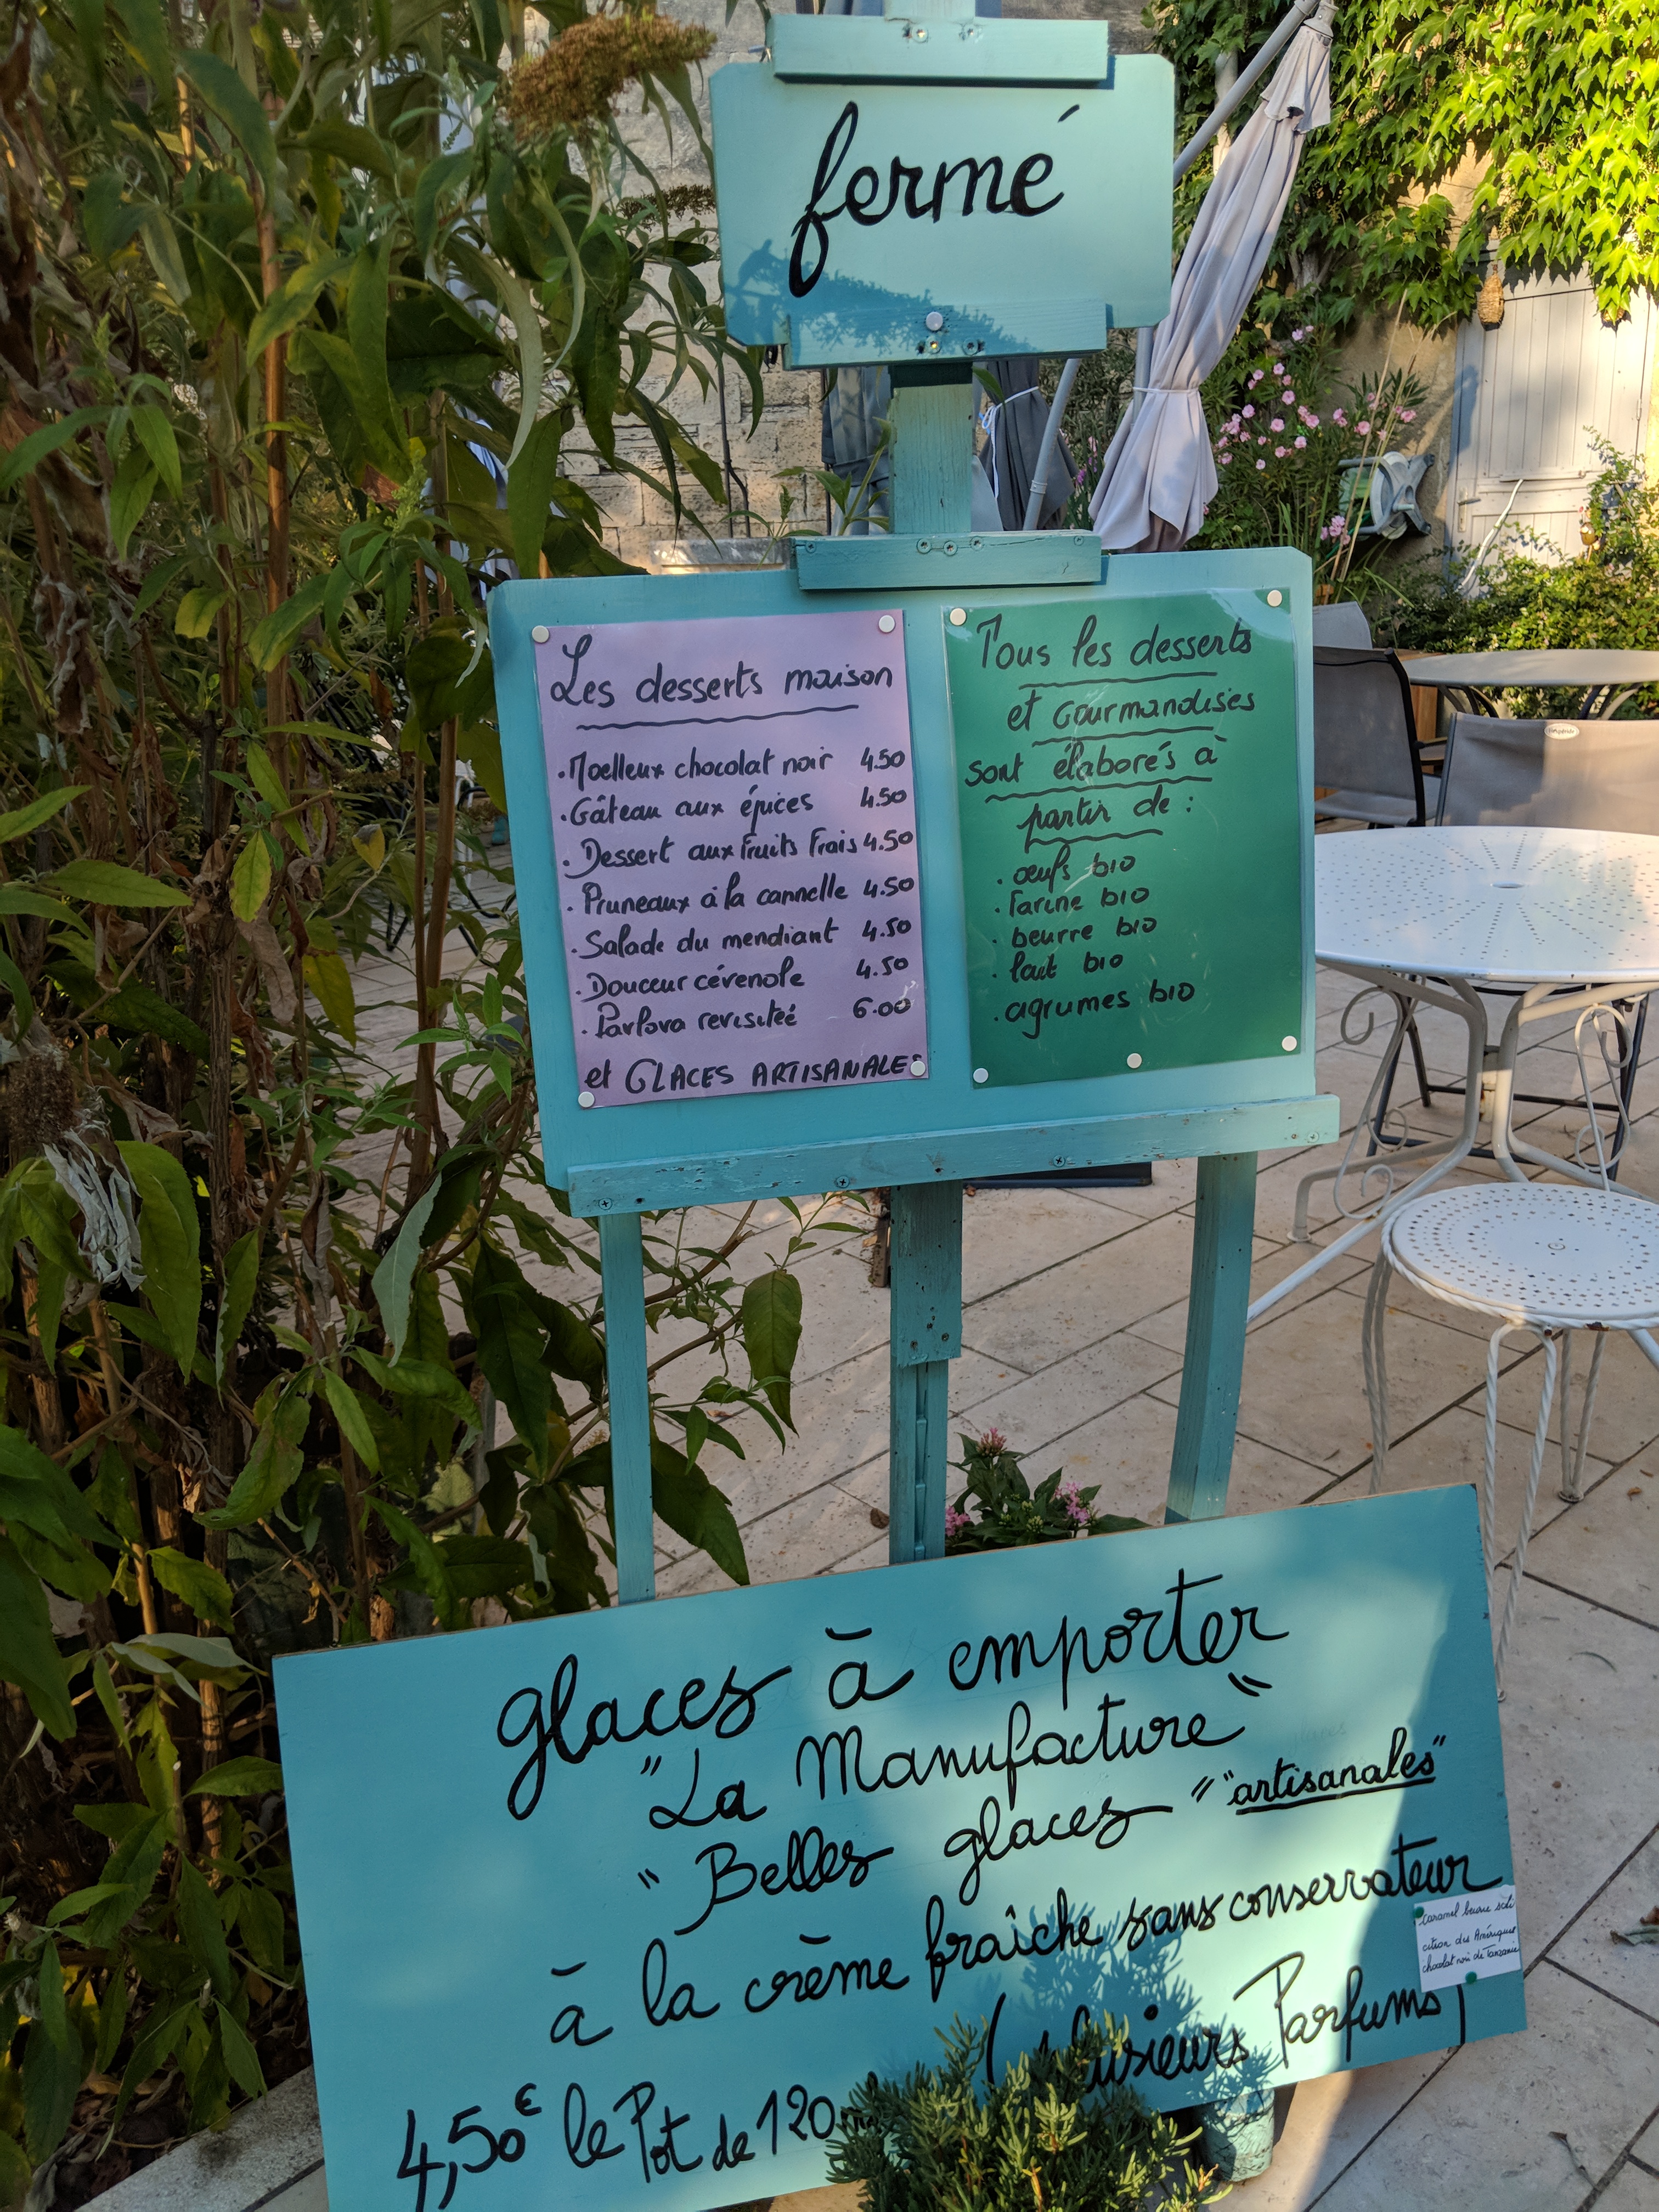 fermé
Les desserts maison
.Moelleux chocolat noir 4.50
.Gâteau aux épices 4.50
. Dessert aux Fruits Frais 4.50
. Pruneaux à la cannelle 4.50
. Salade du mendiant 4.50
. Douceur cévenole 4.50
. Pavlova revisiteé 6.00
et GLACES ARTISANALES
Tous les desserts
et Gourmandises
sont élaborés à
partir de :
. œufs bio
. Farine bio
. beurre bio
. lait bio
. agrumes bio
glaces à emporter
"La Manufacture"
"Belles glaces" "artisanales"
à la crème fraîche sans conservateur
(plusieurs Parfums)
4,50€ le Pot de 120
caramel beurre
citron des Amériques
chocolat noir de Tanzanie